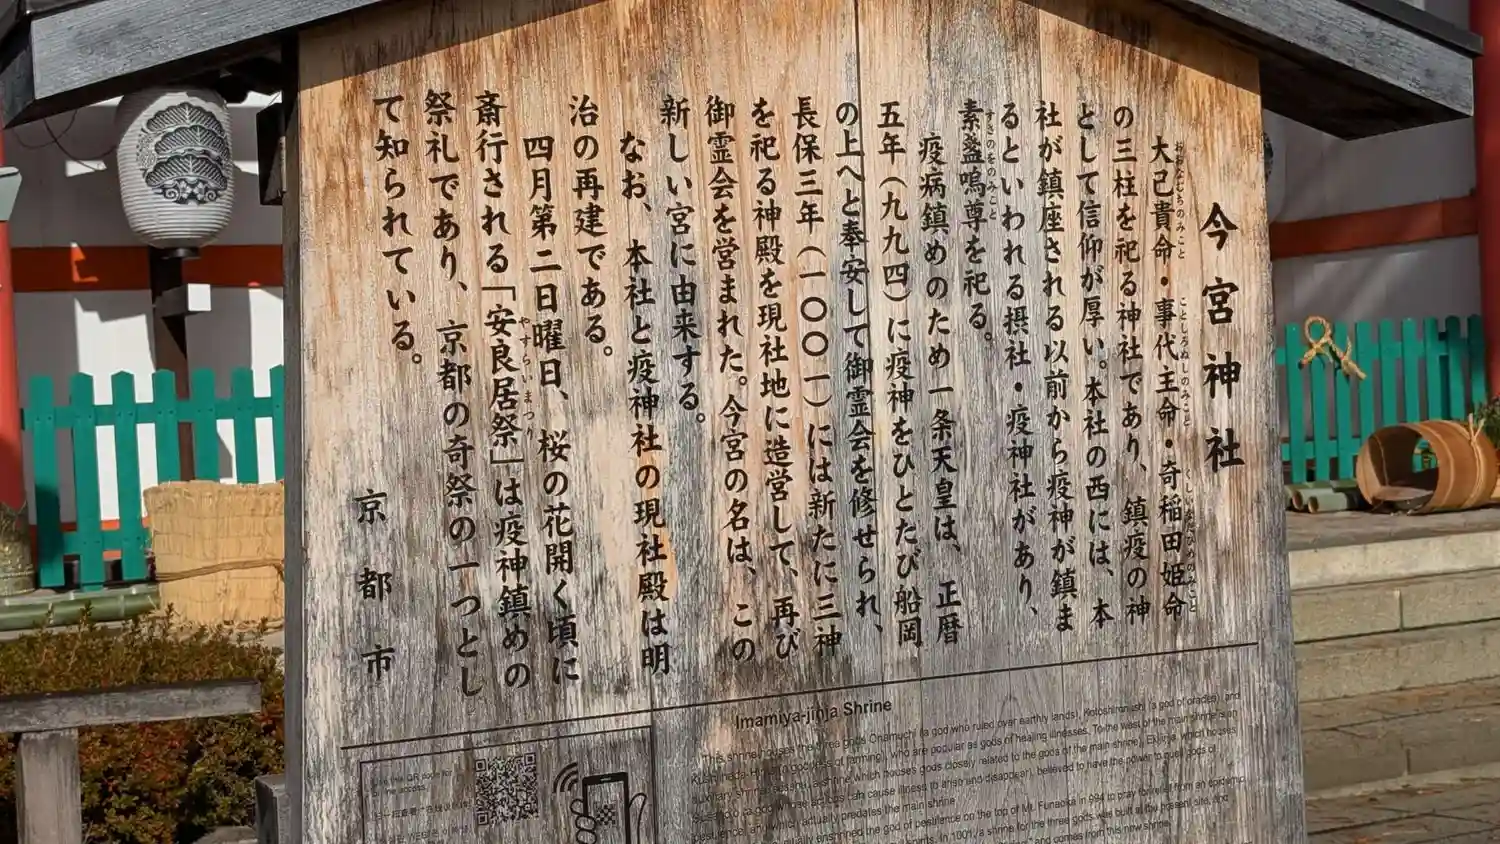 今宮神社
大己貴命・事代主命・奇稲田姫命
の三柱を祀る神社であり、鎮疫の神
として信仰が厚い。本社の西には、本
社が鎮座される以前から疫神が鎮ま
るといわれる摂社・疫神社があり、
素盞嗚尊を祀る。
疫病鎮めのため一条天皇は、正暦
五年(九九四)に疫神をひとたび船岡
の上へと奉安して御霊会を修せられ、
長保三年(一〇〇一)には新たに三神
を祀る神殿を現社地に造営して、再び
御霊会を営まれた。今宮の名は、この
新しい宮に由来する。
なお、本社と疫神社の現社殿は明
治の再建である。
四月第二日曜日、桜の花開く頃に
斎行される「安良居祭」は疫神鎮めの
祭礼であり、京都の奇祭の一つとし
て知られている。
京都市
Imamiya-jinja Shrine
This shrine houses the three gods Onamuchi (a god who ruled over earthly lands), Kotoshironushi (a god of oracles), and
(a goddess of farming), who are popular as gods of healing illnesses. To the west of the main shrine is an
auxiliary shrine (a shrine which houses gods closely related to the gods of the main shrine), Eki-jinja, which houses
cause illness to arise and disappear), believed to have the power to quell gods of
pestilence, and which actually predates the main shrine.
enshrined the god of pestilence on the top of Mt. Funaoka in 994 to pray for relief from an epidemic
spirits. In 1001, a shrine for the three gods was built at the present site, and
and comes from this new shrine.